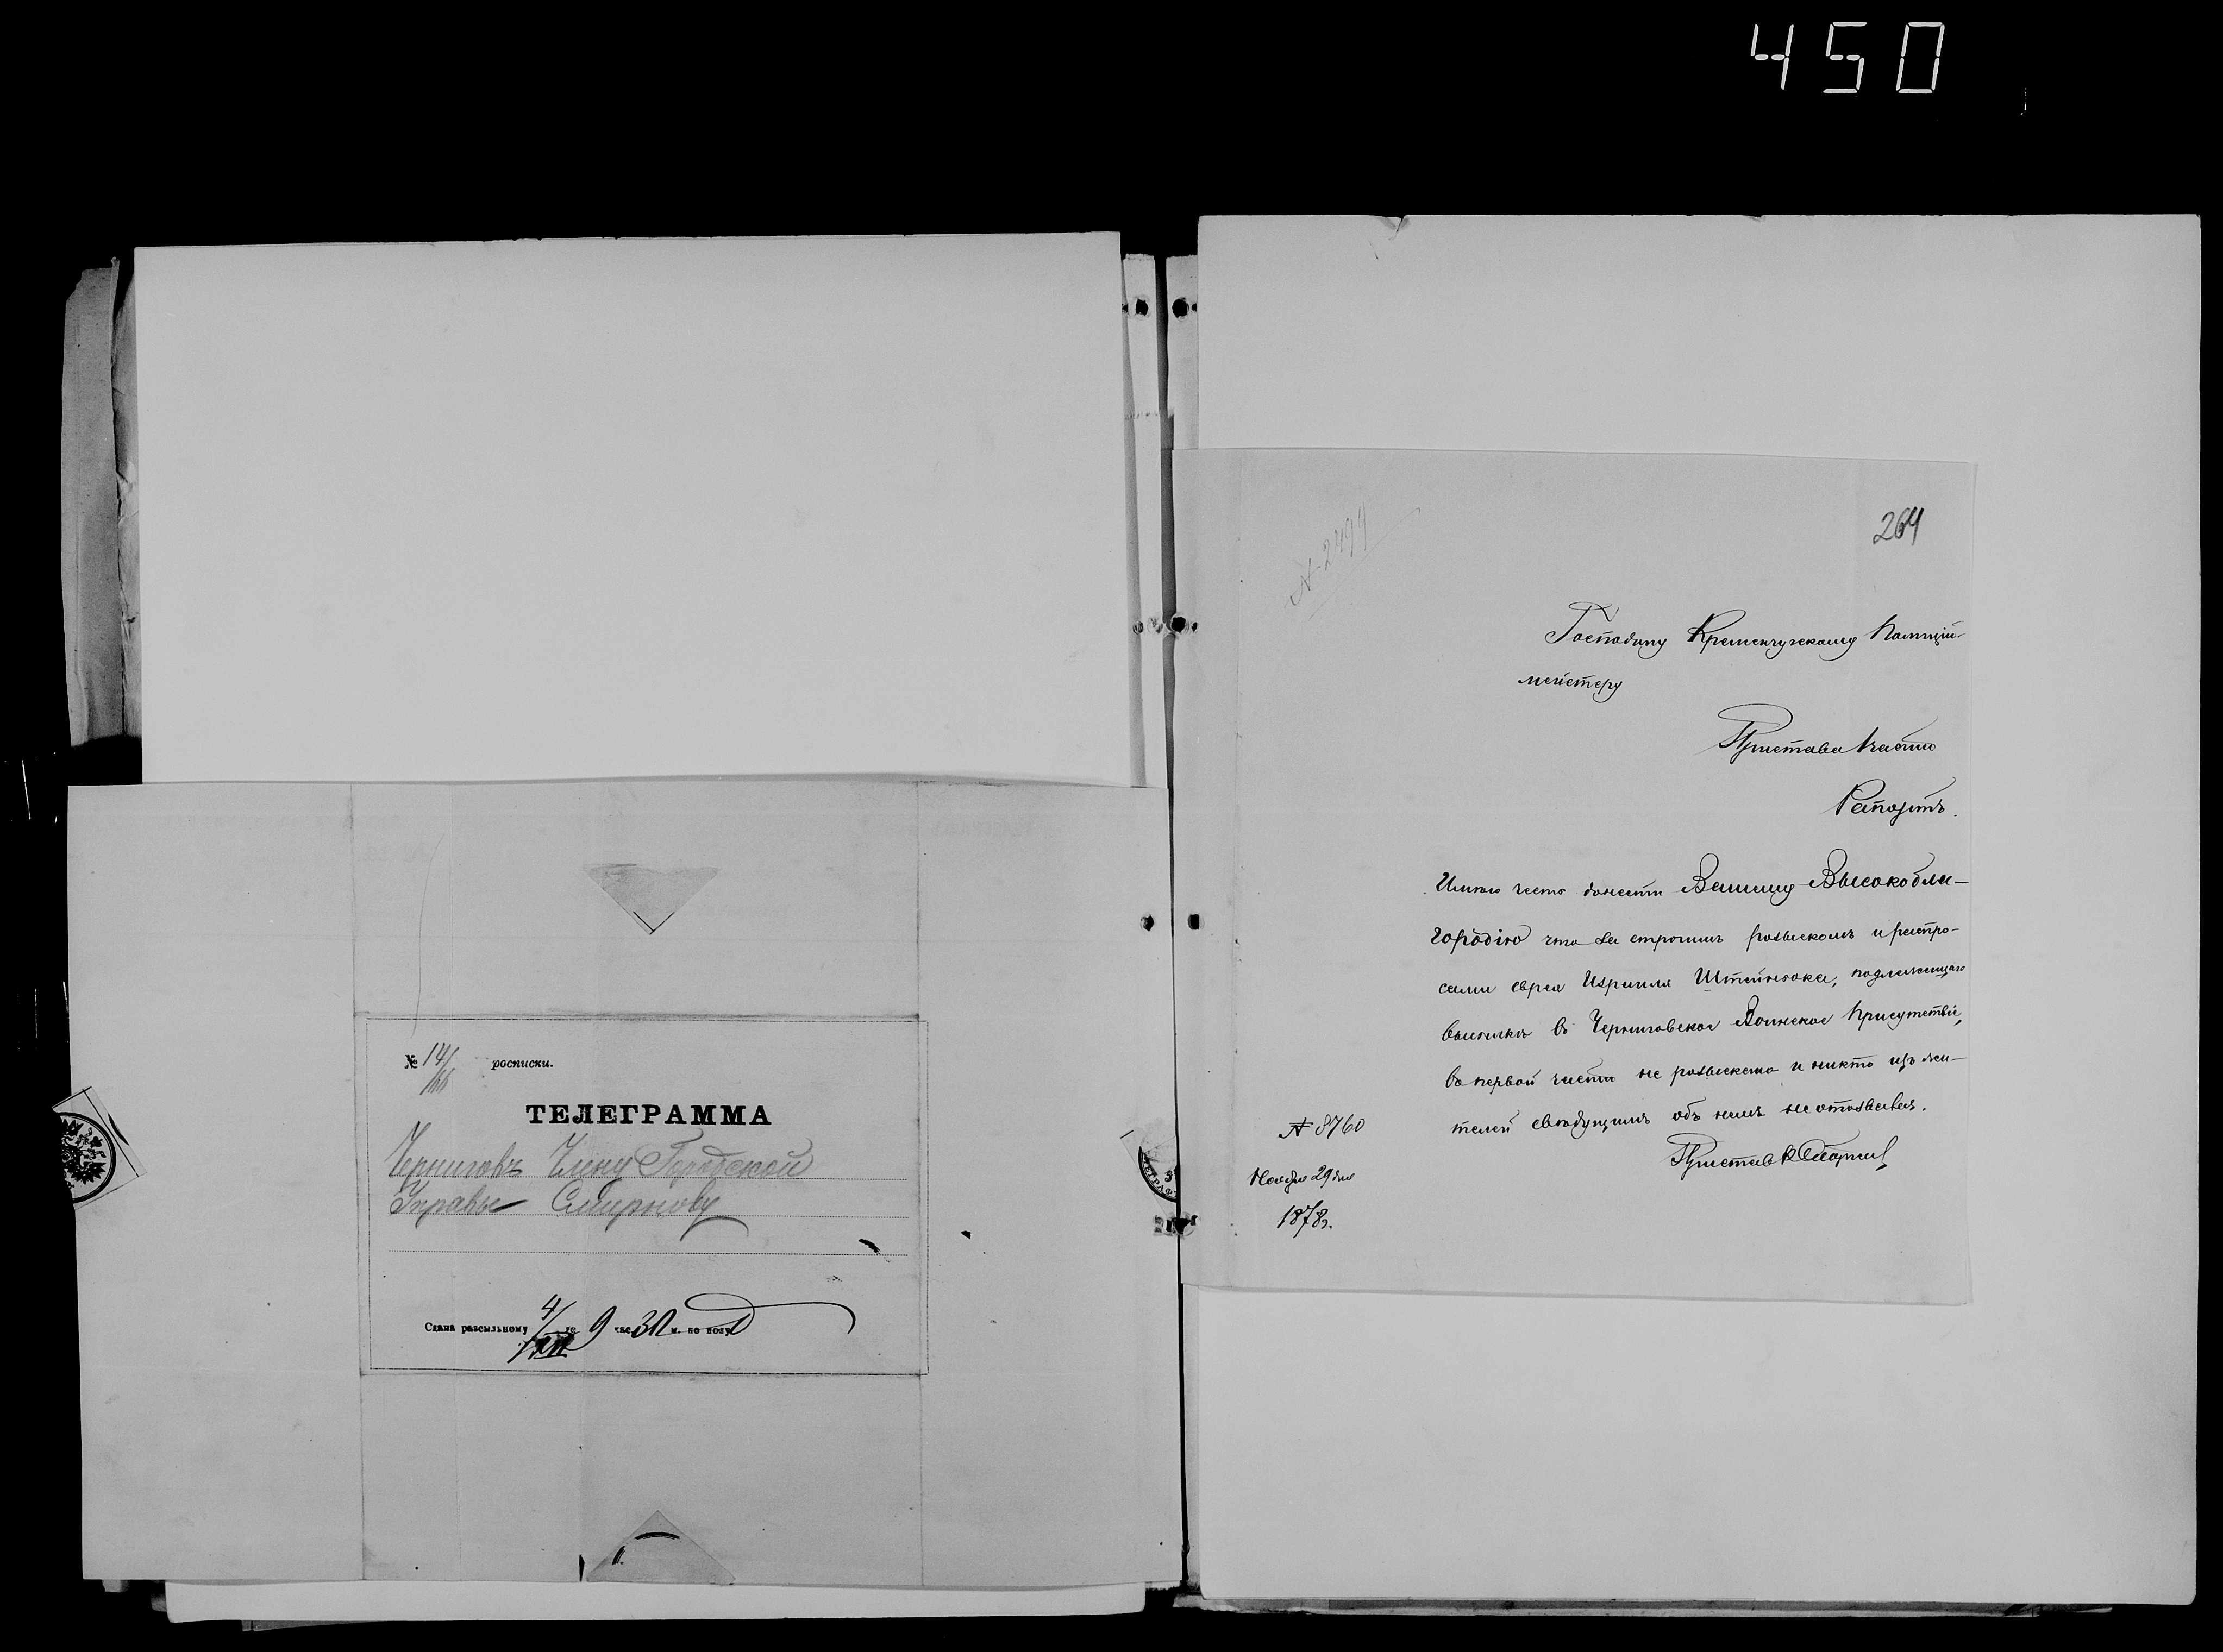 450
№ 14/ росписки.
ТЕЛЕГРАММА
Черниговъ Члену Городской
Управы Смирнову
Сдана разсыльному 4/XII го 9 час 30 м. по полу
264
№ 2494
Господину Кременчугскому Полицій-
мейстеру
Пристава 1 части
Рапортъ.
Имѣю честь донести Вашему Высокобла-
городію что за строгимъ розыскомъ и распро-
сами еврея Израиля Штейнбока, подлежащаго
высылкѣ въ Черниговское Воинское Присутствіе,
въ первой части не розыскано и никто изъ жи-
телей свѣдущимъ объ немъ не отозвался.
Приставъ
№ 8760
Ноября 29 дня
1878 г.